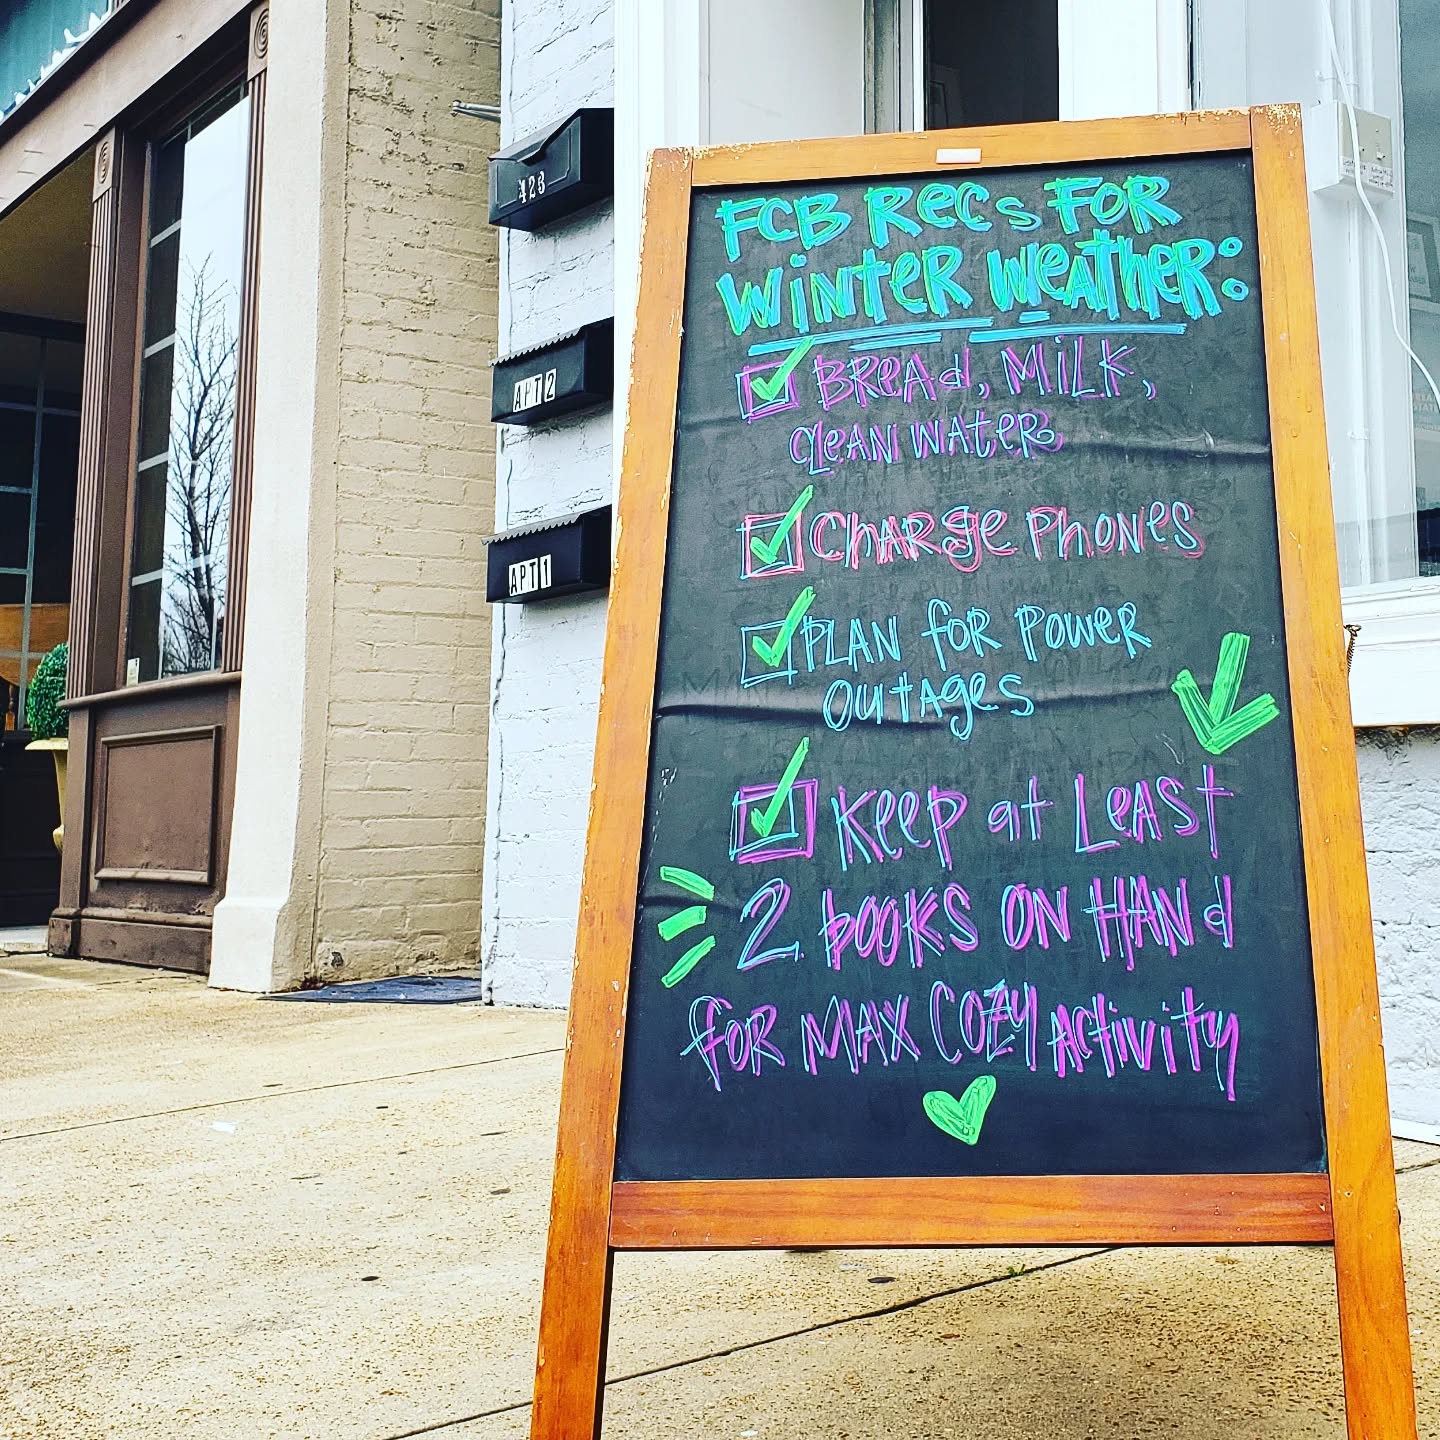 FCB Recs FOR
WINTER WEATHER:
BREAd, MiLK,
CLEAN WATER
CHARge PHONES
PLAN FOR POWER
OUTAges
Keep at LEAST
2 BOOKS ON HANd
FOR MAX COZY ACTIVITY
423
APT 2
APT 1